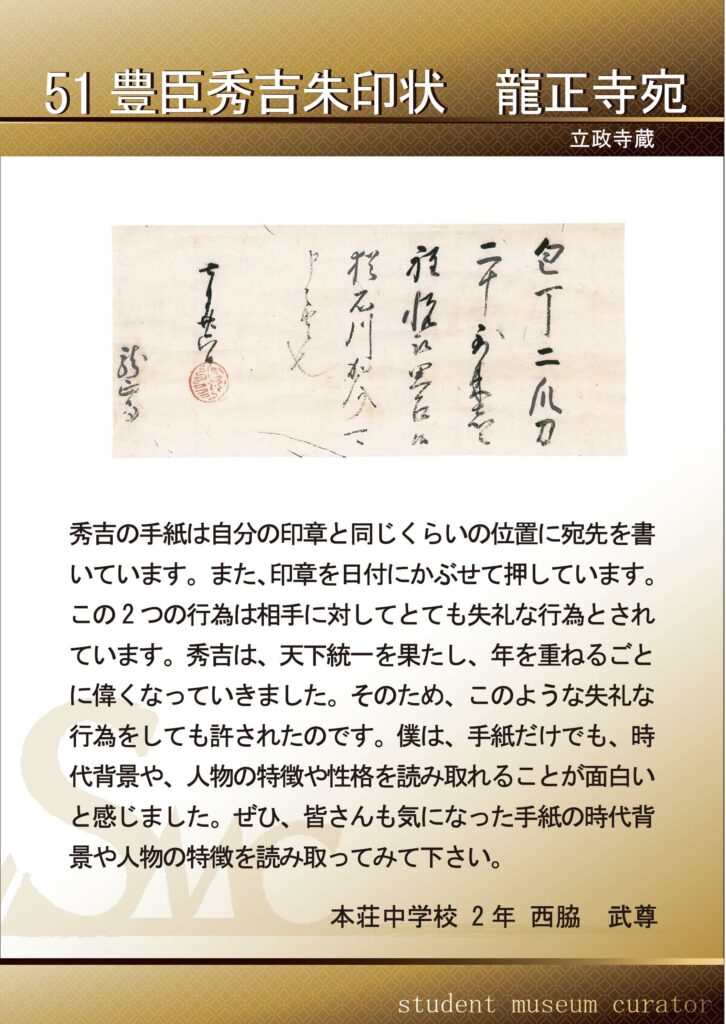 51 豊臣秀吉朱印状　龍正寺宛
立政寺蔵
包丁二爪刀
二千到来
石川
秀吉の手紙は自分の印章と同じくらいの位置に宛先を書
いています。また、印章を日付にかぶせて押しています。
この２つの行為は相手に対してとても失礼な行為とされ
ています。秀吉は、天下統一を果たし、年を重ねるごと
に偉くなっていきました。そのため、このような失礼な
行為をしても許されたのです。僕は、手紙だけでも、時
代背景や、人物の特徴や性格を読み取れることが面白い
と感じました。ぜひ、皆さんも気になった手紙の時代背
景や人物の特徴を読み取ってみて下さい。
本荘中学校 2年 西脇　武尊
SMC
student museum curator